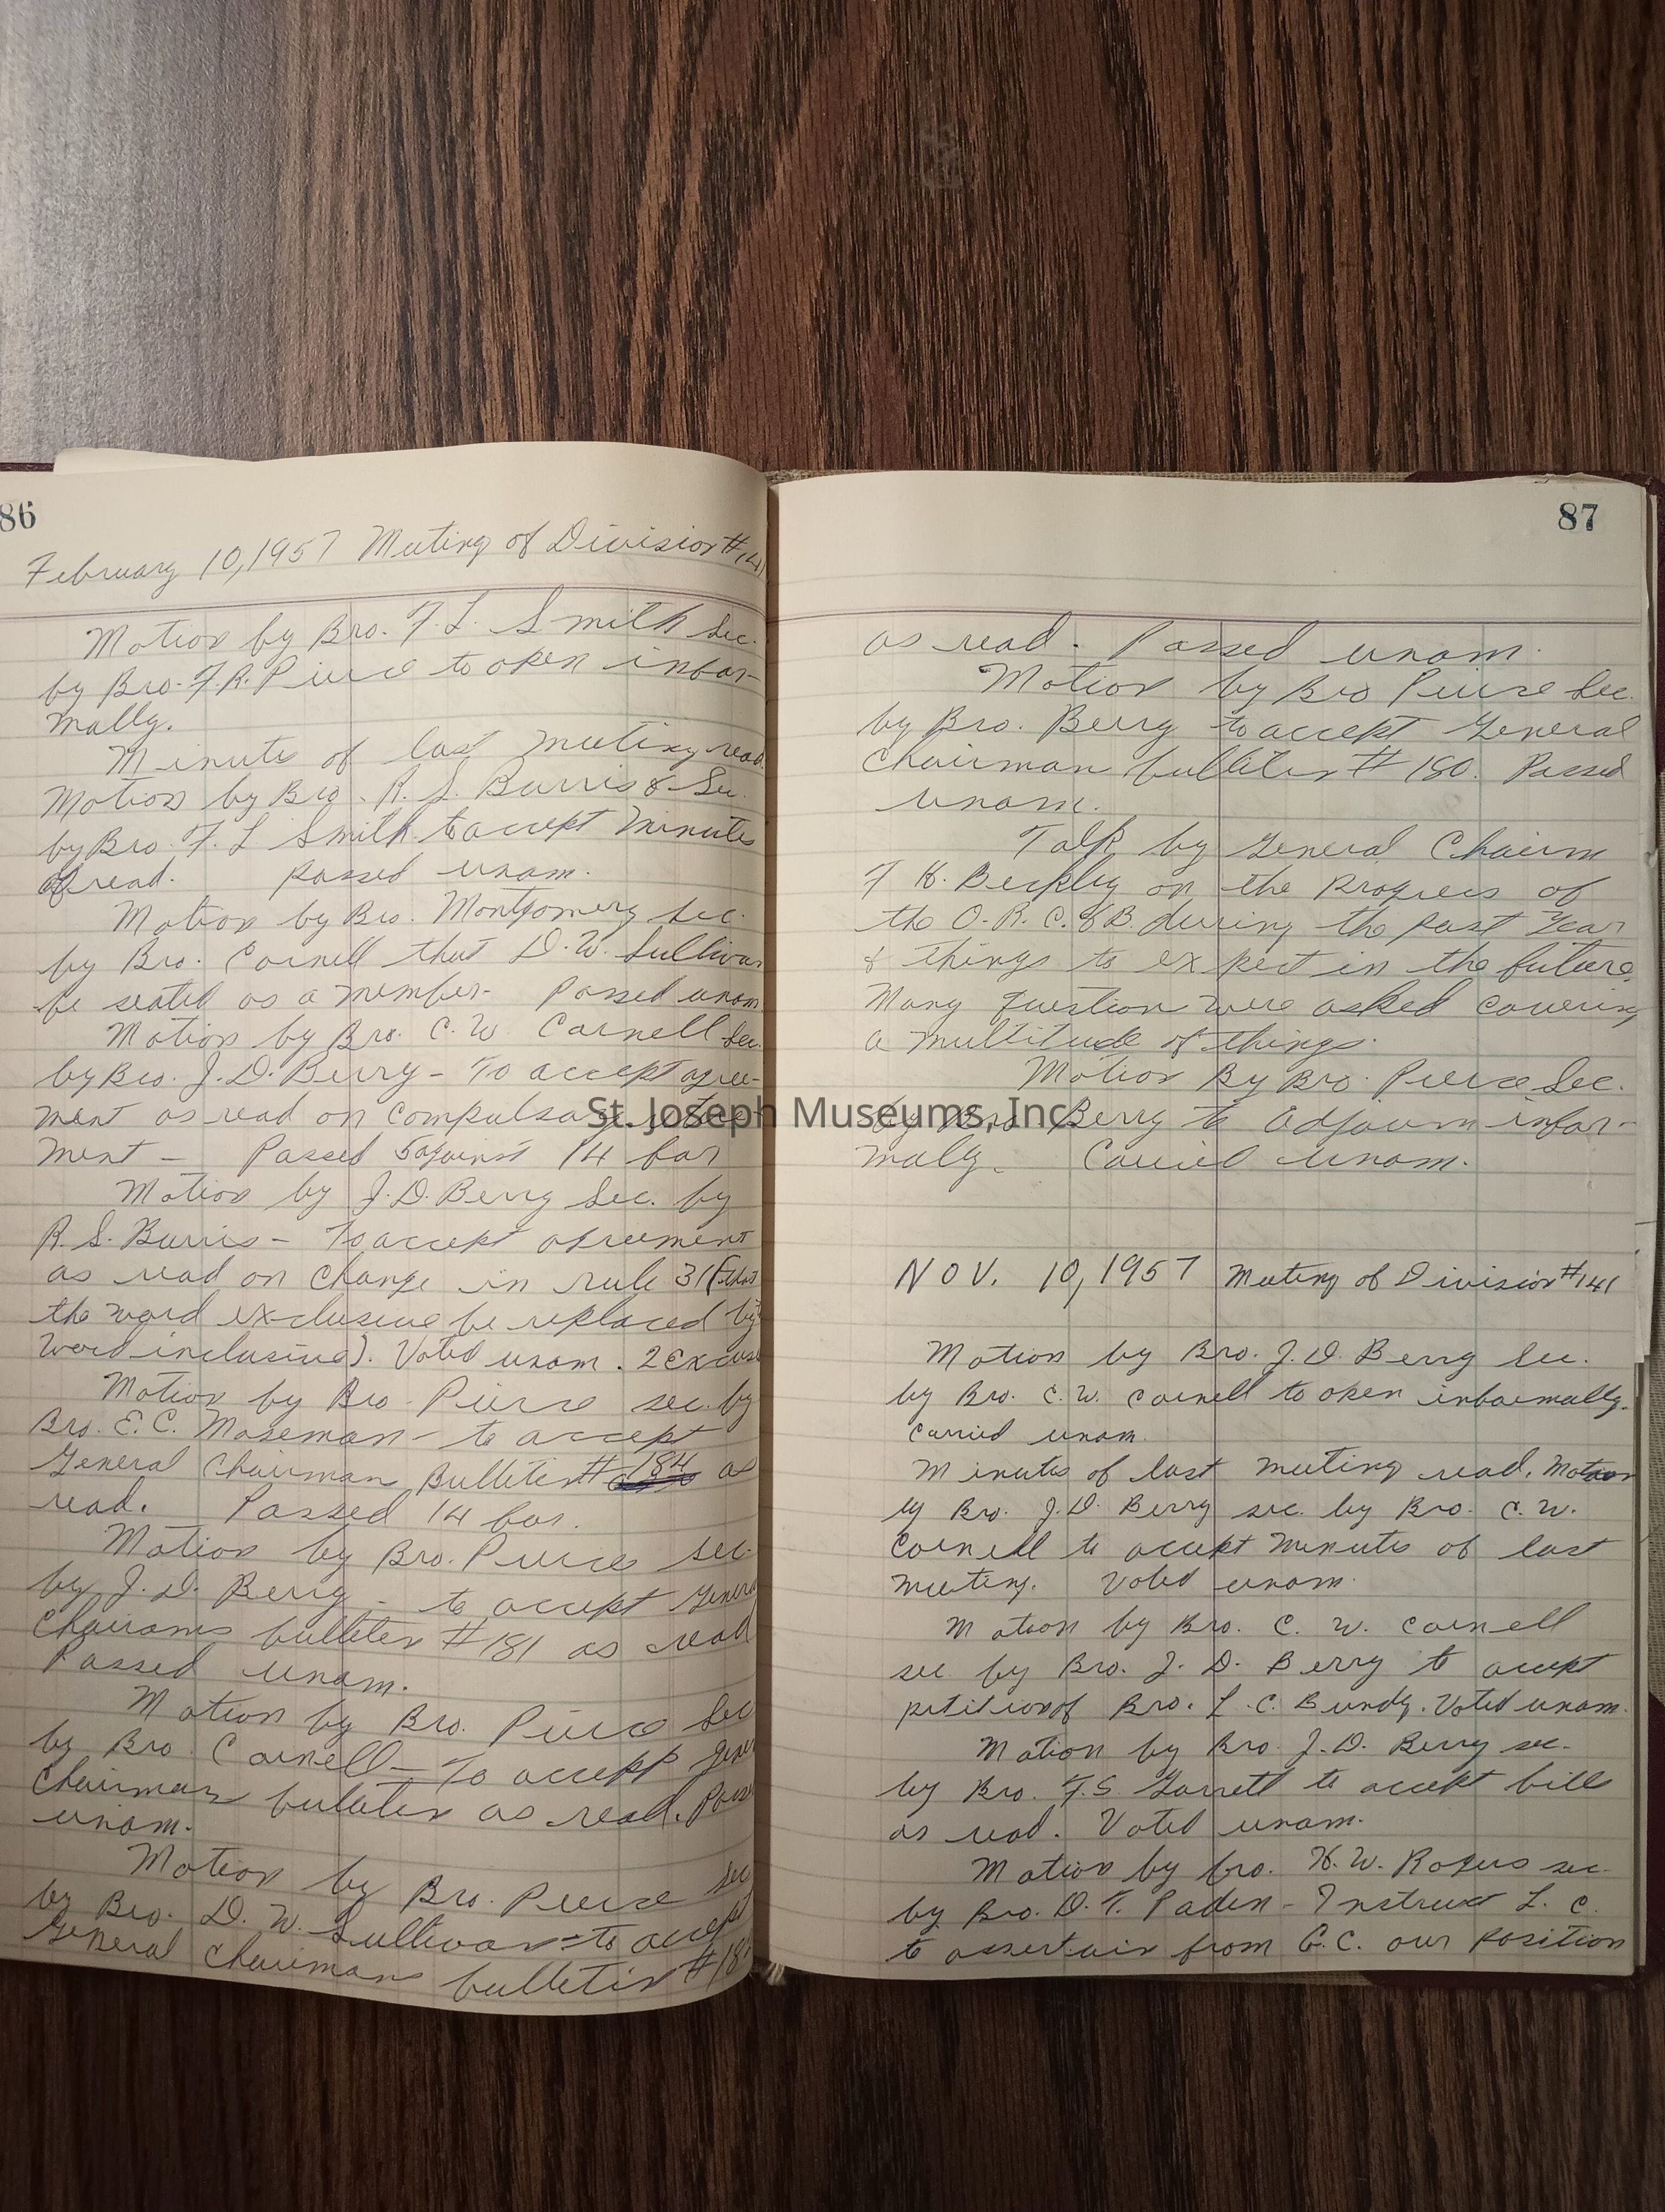 86
February 10, 1957 Meeting of Division #141
Motion by Bro. F. L. Smith Sec.
by Bro. F. R. Pierce to open infor-
mally.
Minute of last meeting read.
Motion by Bro. R. S. Burris & Sec.
by Bro. F. L Smith to accept minutes
of read. passed unam.
Motion by Bro. Montgomery Sec.
by Bro. Cornell that D. W. Sullivan
be seated as a member - Passed unam
Motion by Bro. C. W. Cornell Sec.
by Bro. J. D. Berry - To accept agree-
ment as read on compulsary
ment - Passed 5 against 14 for
Motion by J. D. Berry Sec. by
R. S. Burris - To accept agreement
as read on change in rule 31 (
the word exclusive be replaced by
word inclusive). Voted unam. 2 Excuse
Motion by Bro Pierce sec. by
Bro. E. C. Moseman - to accept
General Chairman Bulletin # 184 as
read. Passed 14 for.
Motion by Bro. Pierce sec.
by J. D. Berry - to accept General
Chairams bulleten #181 as read
Passed unam.
Motion by Bro. Pierce Sec
by Bro. Cornell - To accept Gener
Chairman bulleten as read. Pass
unam.
Motion by Bro. Pierce Sec
by Bro. D. W. Sullivan = to accept
General Chairmans bulletin #18
87
as read. Passed unam.
Motion by Bro Pierce Sec.
by Bro. Berry to accept General
Chairman bulleten # 180. Passed
unam.
Talk by General Chairm
F K. Beckley on the Progress of
the O. R. C. & B. during the past Year
& things to expect in the future.
Many question were asked covering
a multitude of things.
Motion By Bro. Pierce Sec.
by Bro Berry to Adjourn infor-
maly. Carried unam.
NOV. 10, 1957 Meeting of Division #141
Motion by Bro. J. D. Berry Sec.
by Bro. C. W. Cornell to open informally.
Carried unam.
Minutes of last meeting read. Motion
by Bro. J. D. Berry sec. by Bro. C. W.
Cornell to accept minutes of last
meeting. Voted unam.
Motion by Bro. C. W. Cornell
sec by Bro. J. D. Berry to accept
petition of Bro. L. C. Bundy. Voted unam.
Motion by Bro. J. D. Berry sec.
by Bro. F. S. Garrett to accept bills
as read. Voted unam.
Motion by bro. H. W. Rogers sec.
by Bro. O. T. Paden - Instruct L. C.
to assertain from G. C. our position
St. Joseph Museums, Inc.